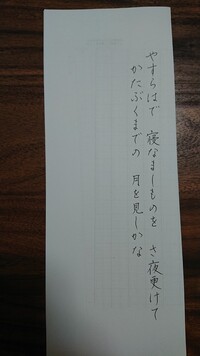 やすらはで 寝なましものを さ夜更けて
かたぶくまでの 月を見しかな